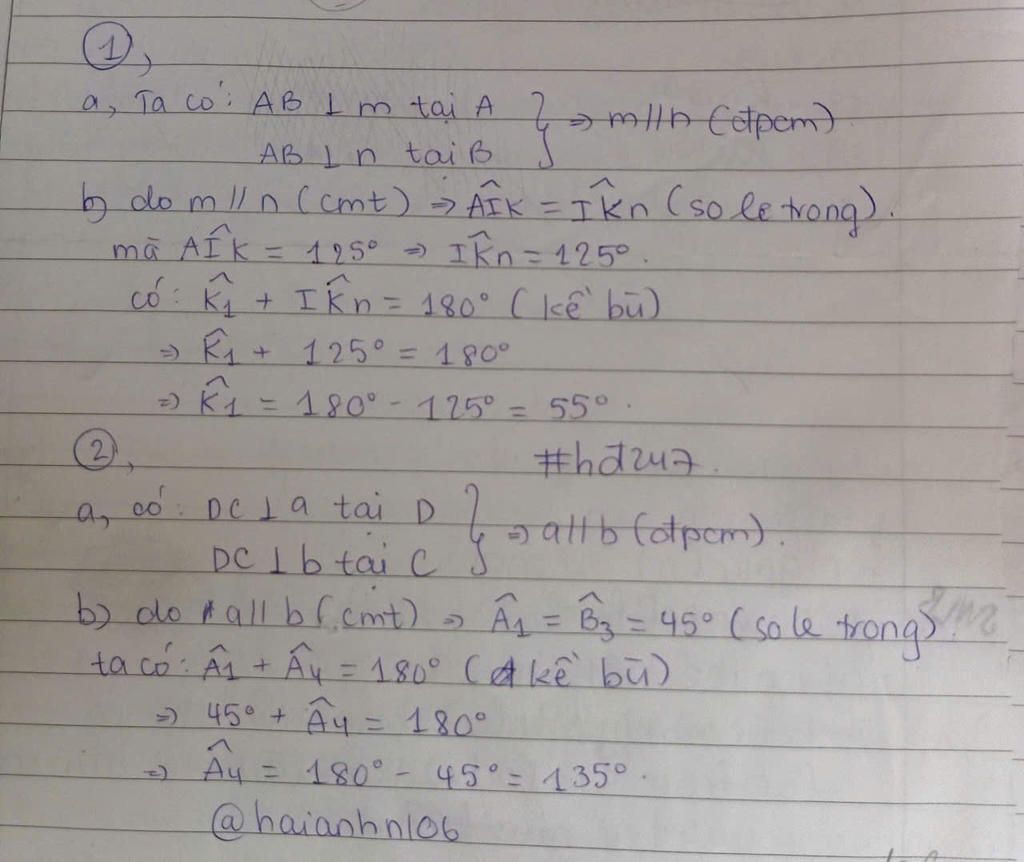 ①,
a, Ta có: AB ⊥ m tại A } ⇒ m // n (đpcm).
AB ⊥ n tại B
b) do m // n (cmt) ⇒ AÎK = IK̂n (so le trong).
mà AÎK = 125° ⇒ IK̂n = 125°.
có: K̂1 + IK̂n = 180° (kề bù)
⇒ K̂1 + 125° = 180°
⇒ K̂1 = 180° - 125° = 55°.
②,
#hđ247.
a, có: DC ⊥ a tại D } ⇒ a // b (đpcm).
DC ⊥ b tại C
b) do a // b (cmt) ⇒ Â1 = B̂3 = 45° (so le trong).
ta có: Â1 + Â4 = 180° (kề bù)
⇒ 45° + Â4 = 180°
⇒ Â4 = 180° - 45° = 135°.
@haianhn106